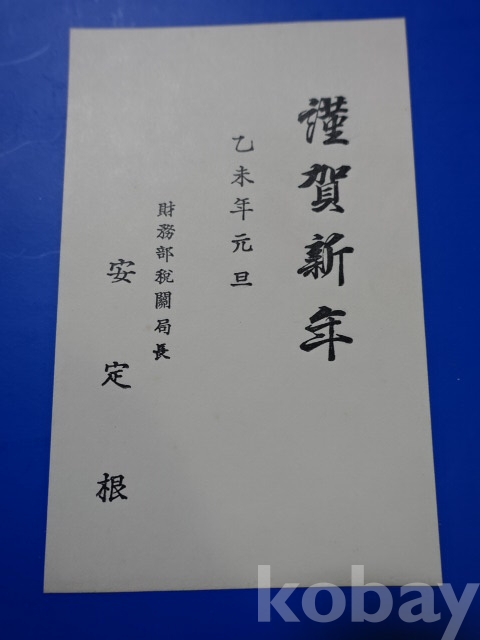 謹賀新年
乙未年元旦
財務部稅關局長
安定根
kobay